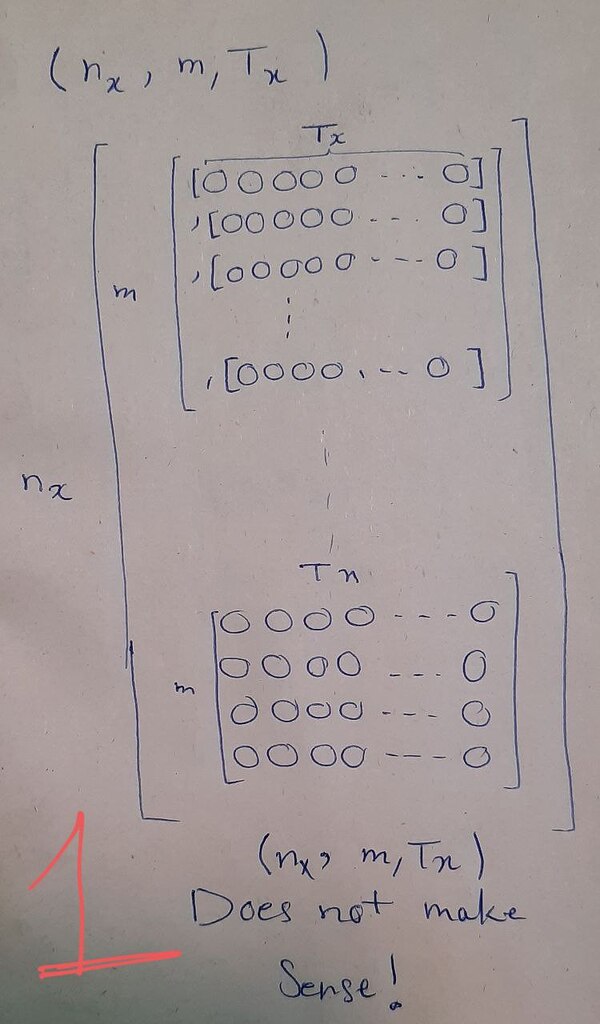 (n_x, m, T_x)
T_x
[[00000 --- 0]
,[00000 --- 0]
m
,[00000 --- 0]
,[0000 . -- 0]]
n_x
T n
[0000 --- 0
0000 --- 0
m
0000 --- 0
0000 --- 0]
(n_x, m, T_n)
1
Does not make
Sense!